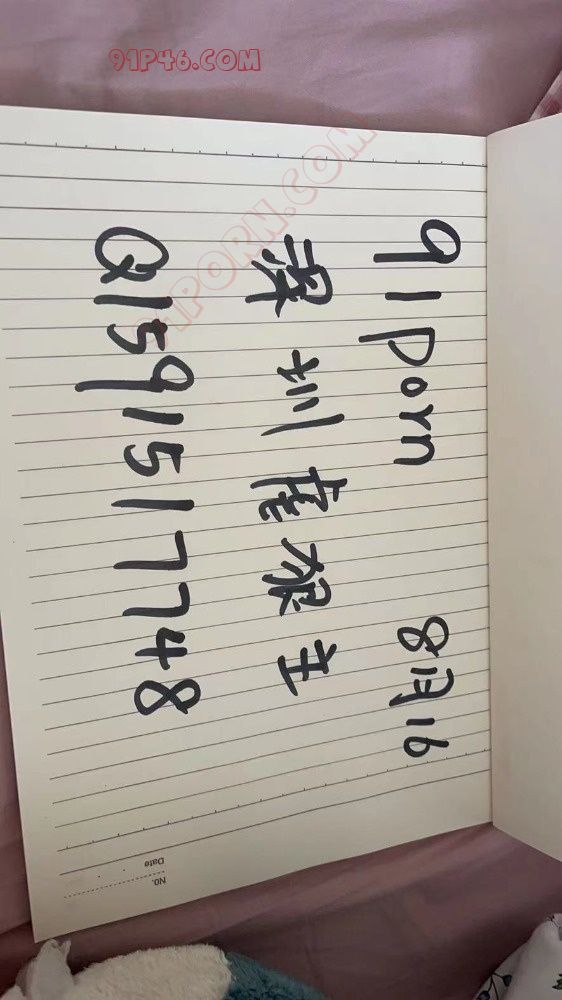 91P46.COM
91PORN.COM
91porn 8月16
深圳虎狼主
Q1591517748
No.
Date